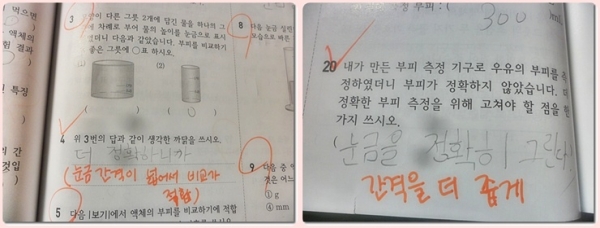 먹으면
액체의
험 결과
은 특징
것입
3
양이 다른 그릇 2개에 담긴 물을 하나의 그
에 차례로 부어 물의 높이를 눈금으로 표시
했더니 다음과 같았습니다. 부피를 비교하기
좋은 그릇에 ○표 하시오.
(1)
(2)
( ) ( )
4 위 3번의 답과 같이 생각한 까닭을 쓰시오.
더 정확하니까
(눈금 간격이 넓어서 비교가
적합)
5 다음 |보기|에서 액체의 부피를 비교하기에 적합
8
다음 눈금 실린
모습으로 바른
9
다음 중
것은 어느
① g
④ mm
부피 :
300
20 내가 만든 부피 측정 기구로 우유의 부피를 측
정하였더니 부피가 정확하지 않았습니다.
정확한 부피 측정을 위해 고쳐야 할 점을 한
가지 쓰시오.
(눈금을 정확히 그린다.
간격을 더 좁게